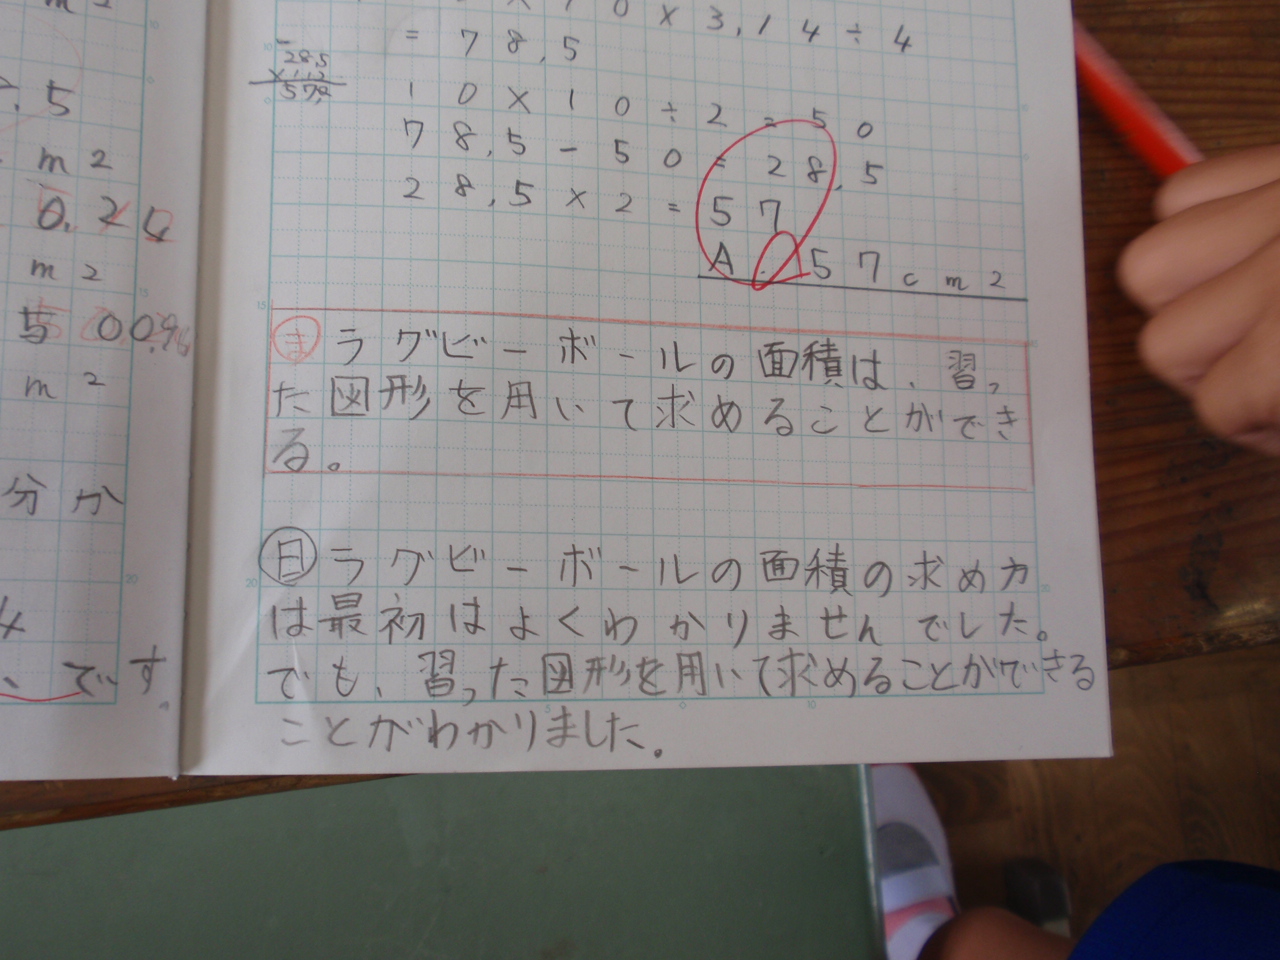 m 2
. 5
m 2
0.24
m 2
5 00.96
m 2
分か
4
、です
0 × 3.14 ÷ 4
= 78.5
28.5
10 × 10 ÷ 2 = 50
78.5 - 50 = 28.5
28.5 × 2 = 57
A. 57cm2
ま ラグビーボールの面積は、習っ
た図形を用いて求めることができ
る。
日 ラグビーボールの面積の求め方
は最初はよくわかりませんでした。
でも、習った図形を用いて求めることができる
ことがわかりました。